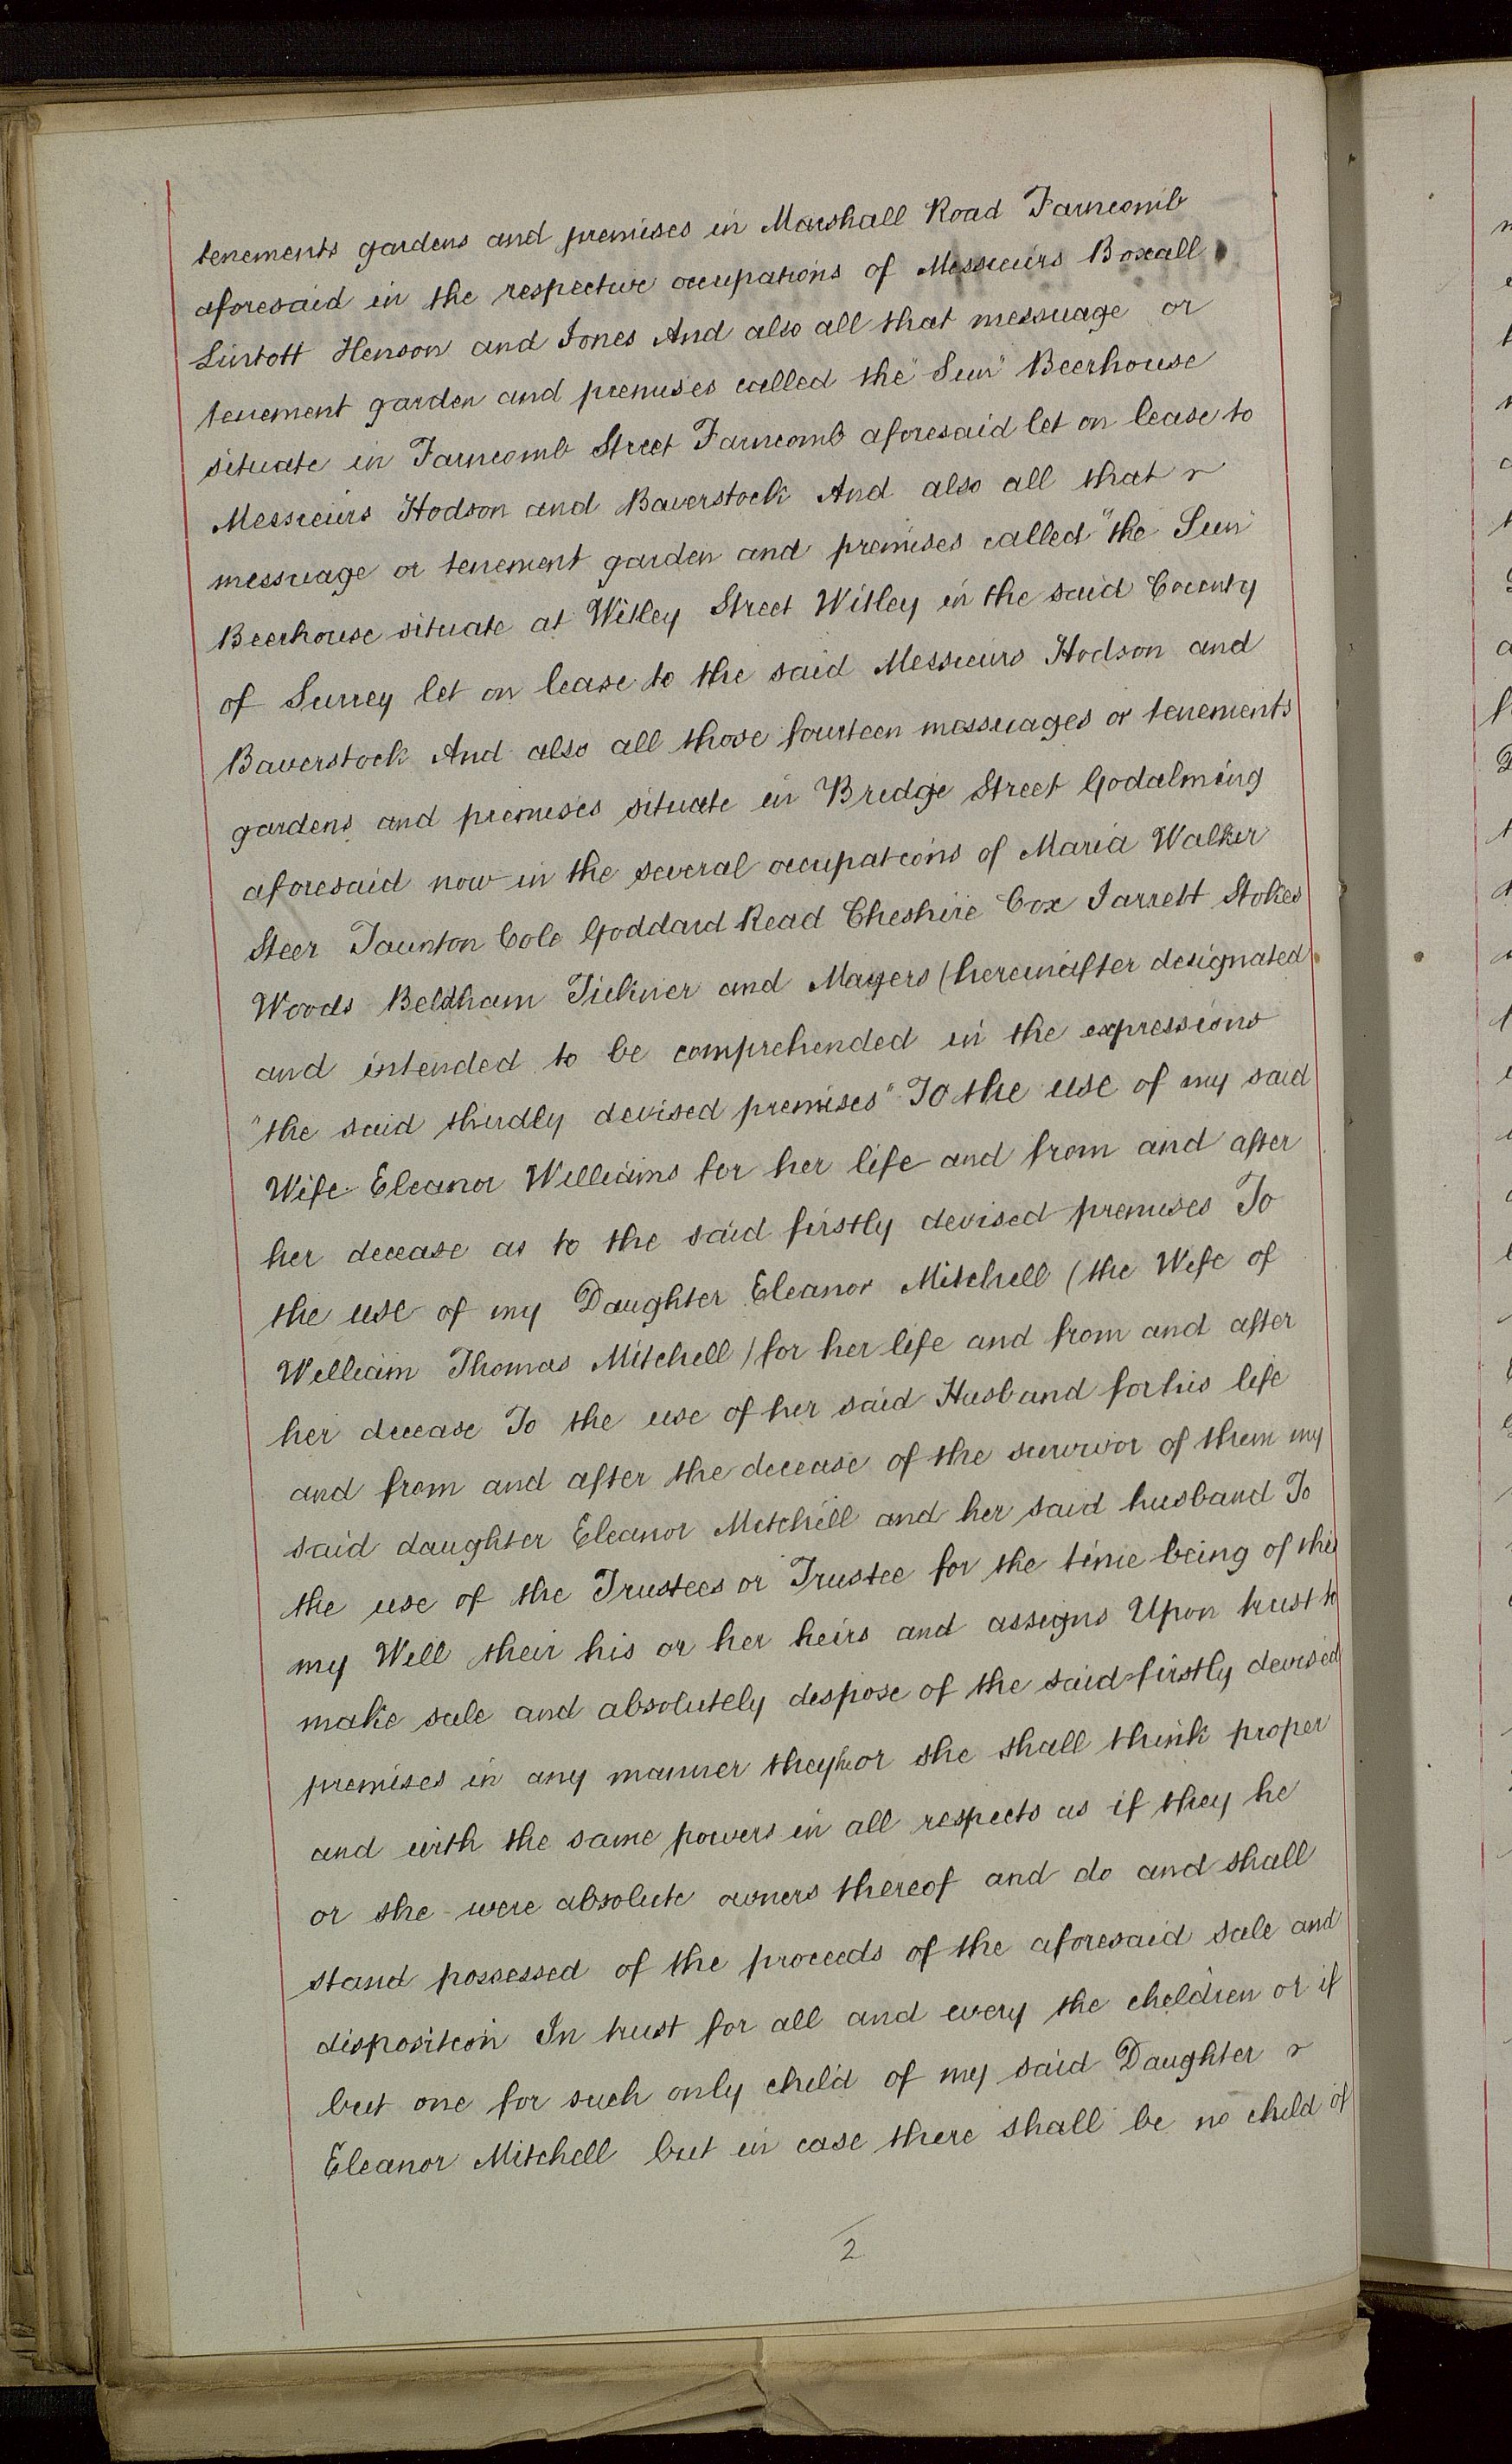 tenements gardens and premises in Marshall Road Farncomb
aforesaid in the respective occupations of Messieurs Boxall
Lintott Henson and Jones And also all that messuage or
tenement garden and premises called the "Sun" Beerhouse
situate in Farncomb Street Farncomb aforesaid let on lease to
Messieurs Hodson and Baverstock And also all that
messuage or tenement garden and premises called "the Sun"
Beerhouse situate at Witley Street Witley in the said County
of Surrey let on lease to the said Messieurs Hodson and
Baverstock And also all those fourteen messuages or tenements
gardens and premises situate in Bridge Street Godalming
aforesaid now in the several occupations of Maria Walker
Steer Taunton Cole Goddard Read Cheshire Cox Jarrett Stokes
Woods Beldham Tickner and Mayers (hereinafter designated
and intended to be comprehended in the expressions
"the said thirdly devised premises" To the use of my said
Wife Eleanor Williams for her life and from and after
her decease as to the said firstly devised premises To
the use of my Daughter Eleanor Mitchell (the Wife of
William Thomas Mitchell) for her life and from and after
her decease To the use of her said Husband for his life
and from and after the decease of the survivor of them my
said daughter Eleanor Mitchell and her said husband To
the use of the Trustees or Trustee for the time being of this
my Will their his or her heirs and assigns Upon trust to
make sale and absolutely dispose of the said firstly devised
premises in any manner they he or she shall think proper
and with the same powers in all respects as if they he
or she were absolute owners thereof and do and shall
stand possessed of the proceeds of the aforesaid sale and
disposition In trust for all and every the children or if
but one for such only child of my said Daughter
Eleanor Mitchell but in case there shall be no child of
2